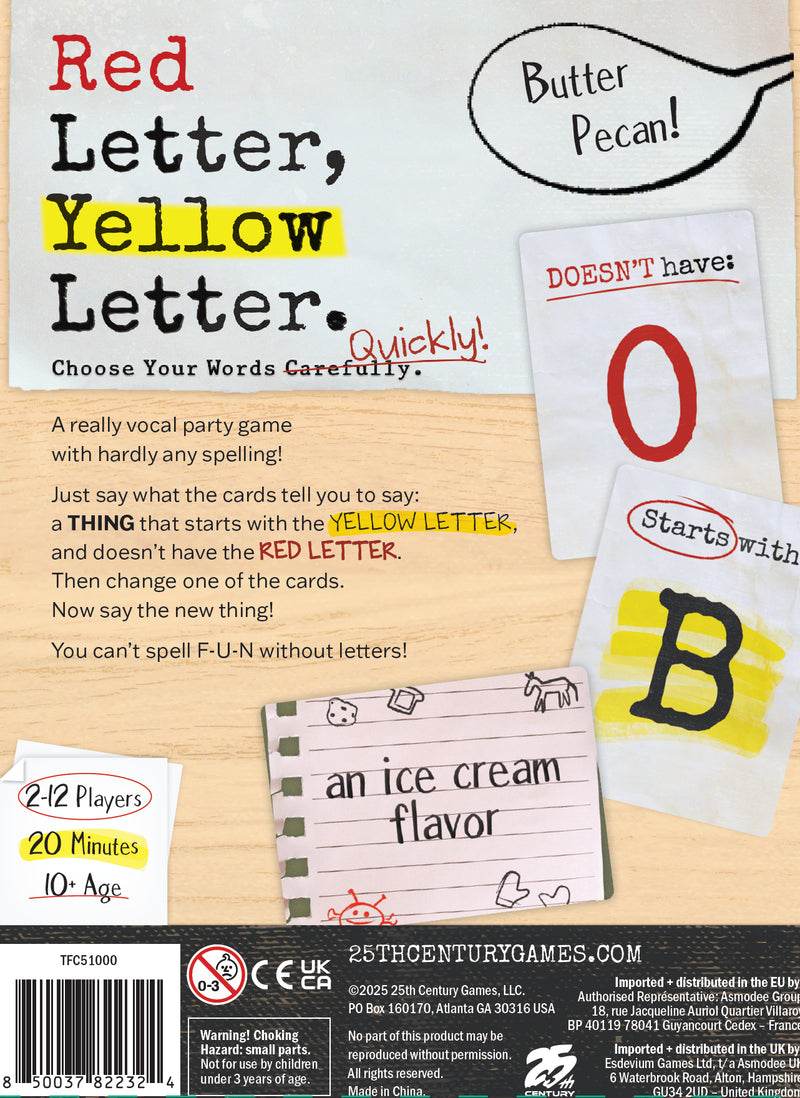 Red
Letter,
Yellow
Letter.
Quickly!
Choose Your Words Carefully.
Butter
Pecan!
DOESN'T have:
O
Starts with
B
A really vocal party game
with hardly any spelling!
Just say what the cards tell you to say:
a THING that starts with the YELLOW LETTER,
and doesn't have the RED LETTER.
Then change one of the cards.
Now say the new thing!
You can't spell F-U-N without letters!
an ice cream
flavor
2-12 Players
20 Minutes
10+ Age
TFC51000
8 50037 82232 4
0-3
CE
UK
CA
Warning! Choking
Hazard: small parts.
Not for use by children
under 3 years of age.
25THCENTURYGAMES.COM
©2025 25th Century Games, LLC.
PO Box 160170, Atlanta GA 30316 USA
No part of this product may be
reproduced without permission.
All rights reserved.
Made in China.
25th
CENTURY
Imported + distributed in the EU by
Authorised Représentative: Asmodee Group
18, rue Jacqueline Auriol Quartier Villaroy
BP 40119 78041 Guyancourt Cedex – France
Imported + distributed in the UK by
Esdevium Games Ltd, t/a Asmodee UK
6 Waterbrook Road, Alton, Hampshire
GU34 2UD – United Kingdom